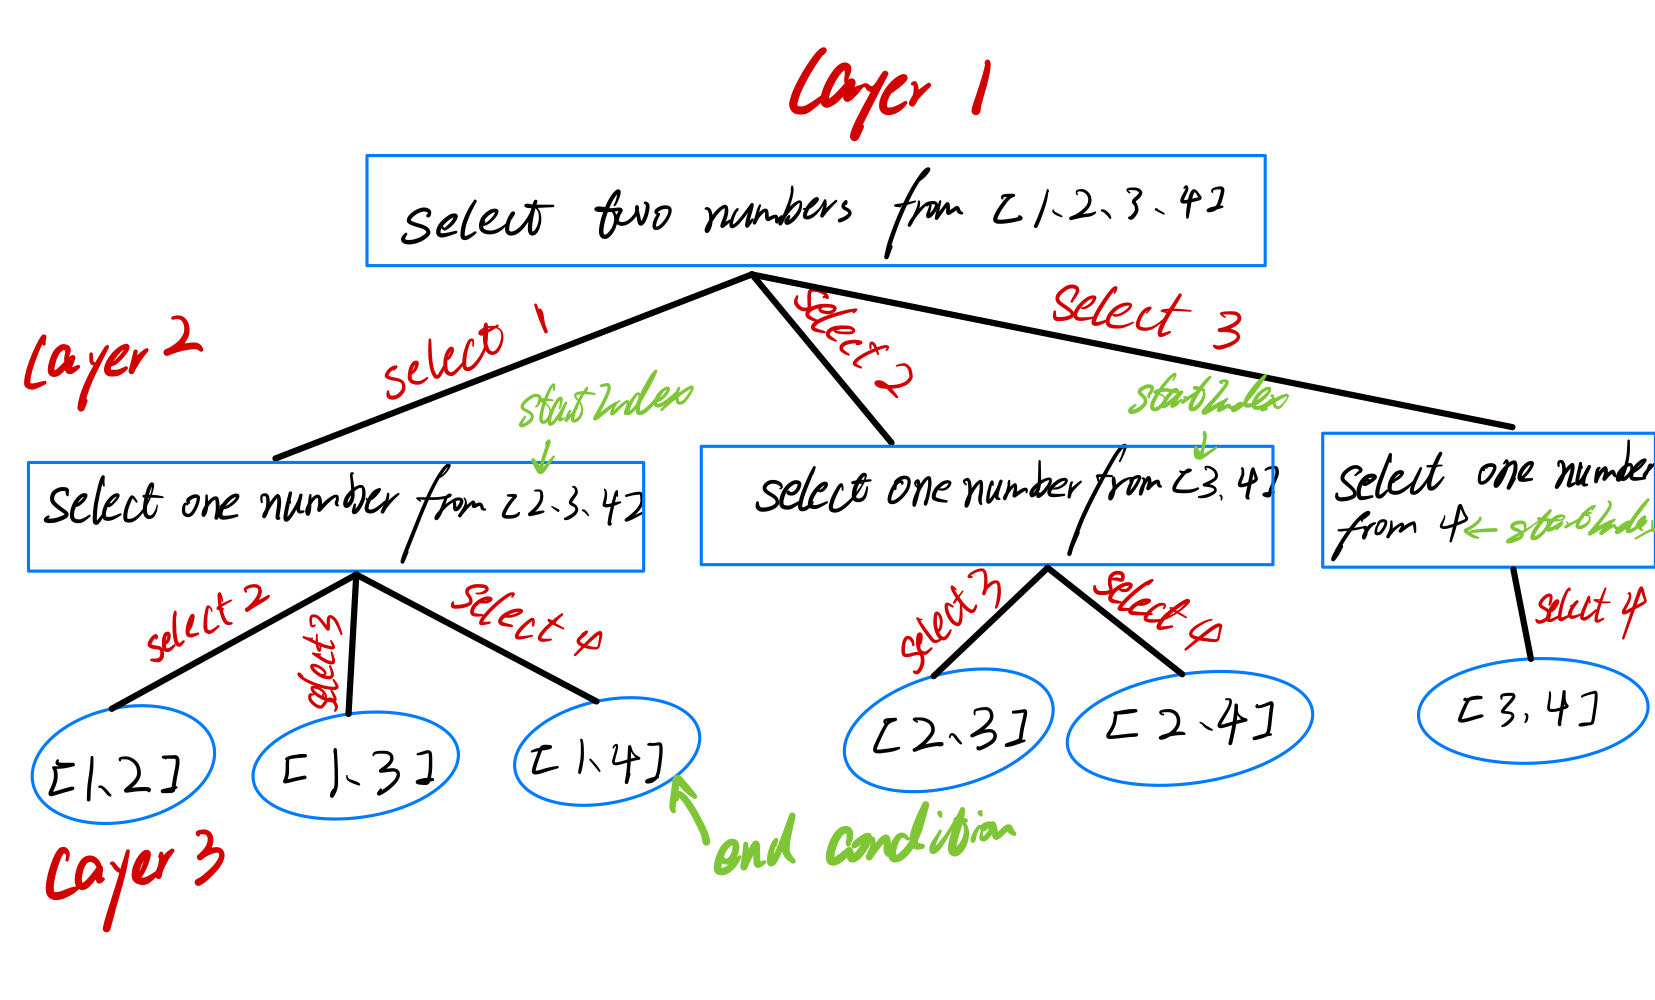 Layer 1
select two numbers from [1、2、3、4]
Layer 2
select 1
select 2
select 3
startIndex
startIndex
select one number from [2、3、4]
select one number from [3、4]
select one number
from 4 ← startIndex
select 2
select 3
select 4
select 3
select 4
select 4
[1、2]
[1、3]
[1、4]
[2、3]
[2、4]
[3、4]
end condition
Layer 3